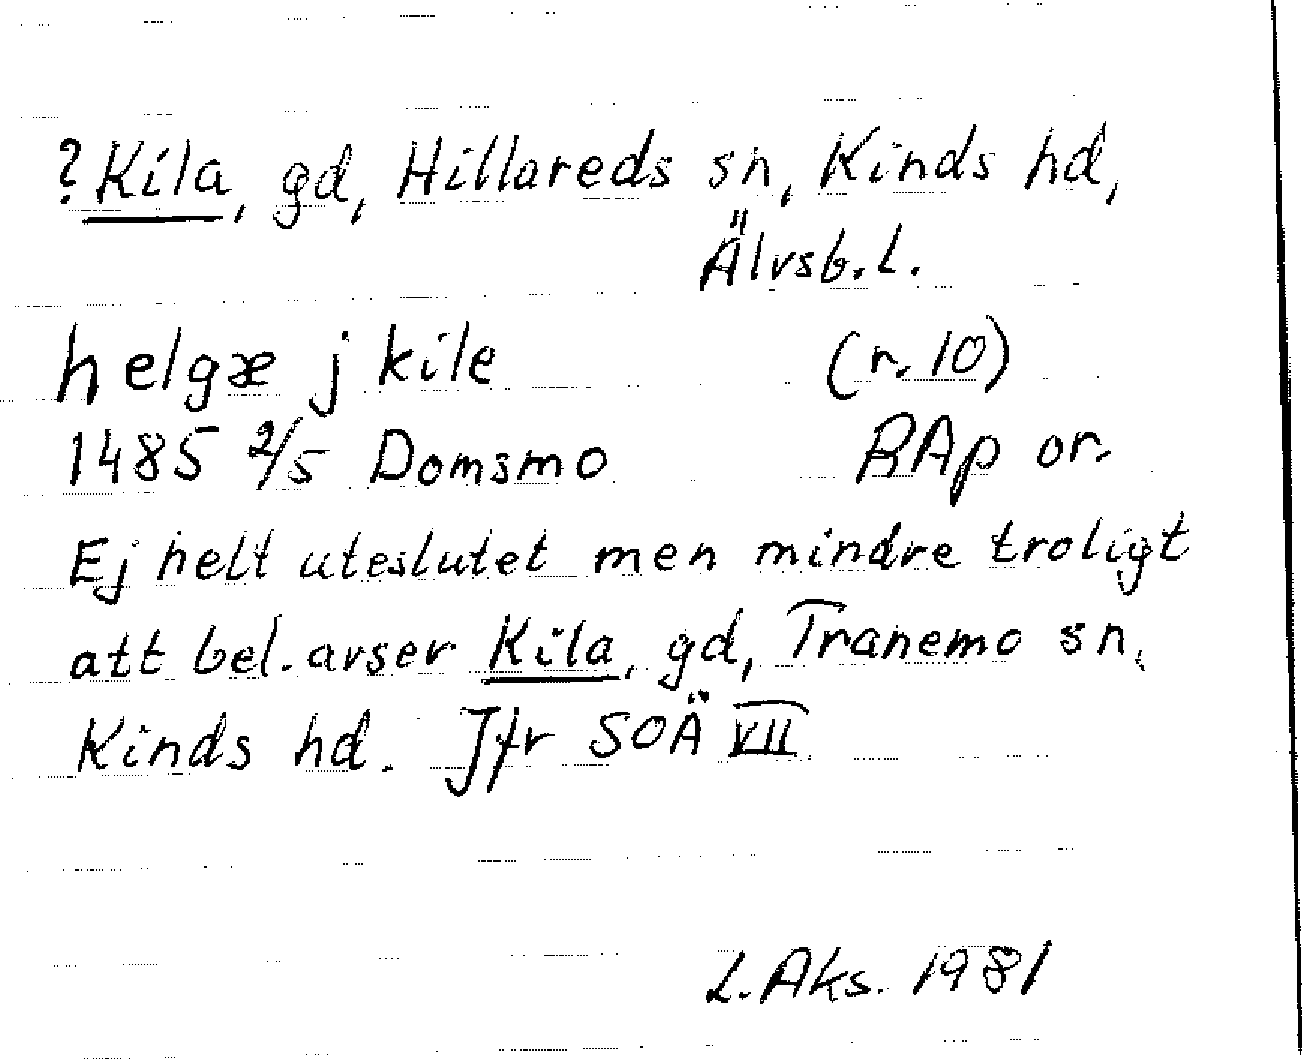 ?Kila, gd, Hillareds sn, Kinds hd,
Älvsb.L.
helgæ j kile (r. 10)
1485 2/5 Domsmo RAp or.
Ej helt uteslutet men mindre troligt
att bel. avser Kila, gd, Tranemo sn,
Kinds hd. Jfr SOÄ VII
L.Aks. 1981